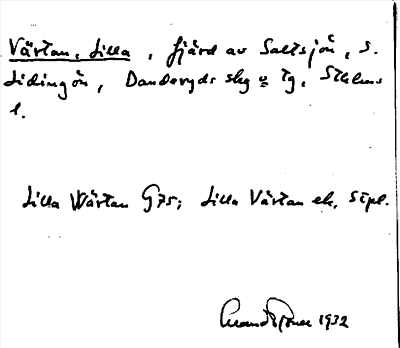 Värtan, Lilla, fjärd av Saltsjön, S.
Lidingön, Danderyds skg o tg, Sthlms
l.
Lilla Wärtan G75; Lilla Värtan ek, stpl.
1932